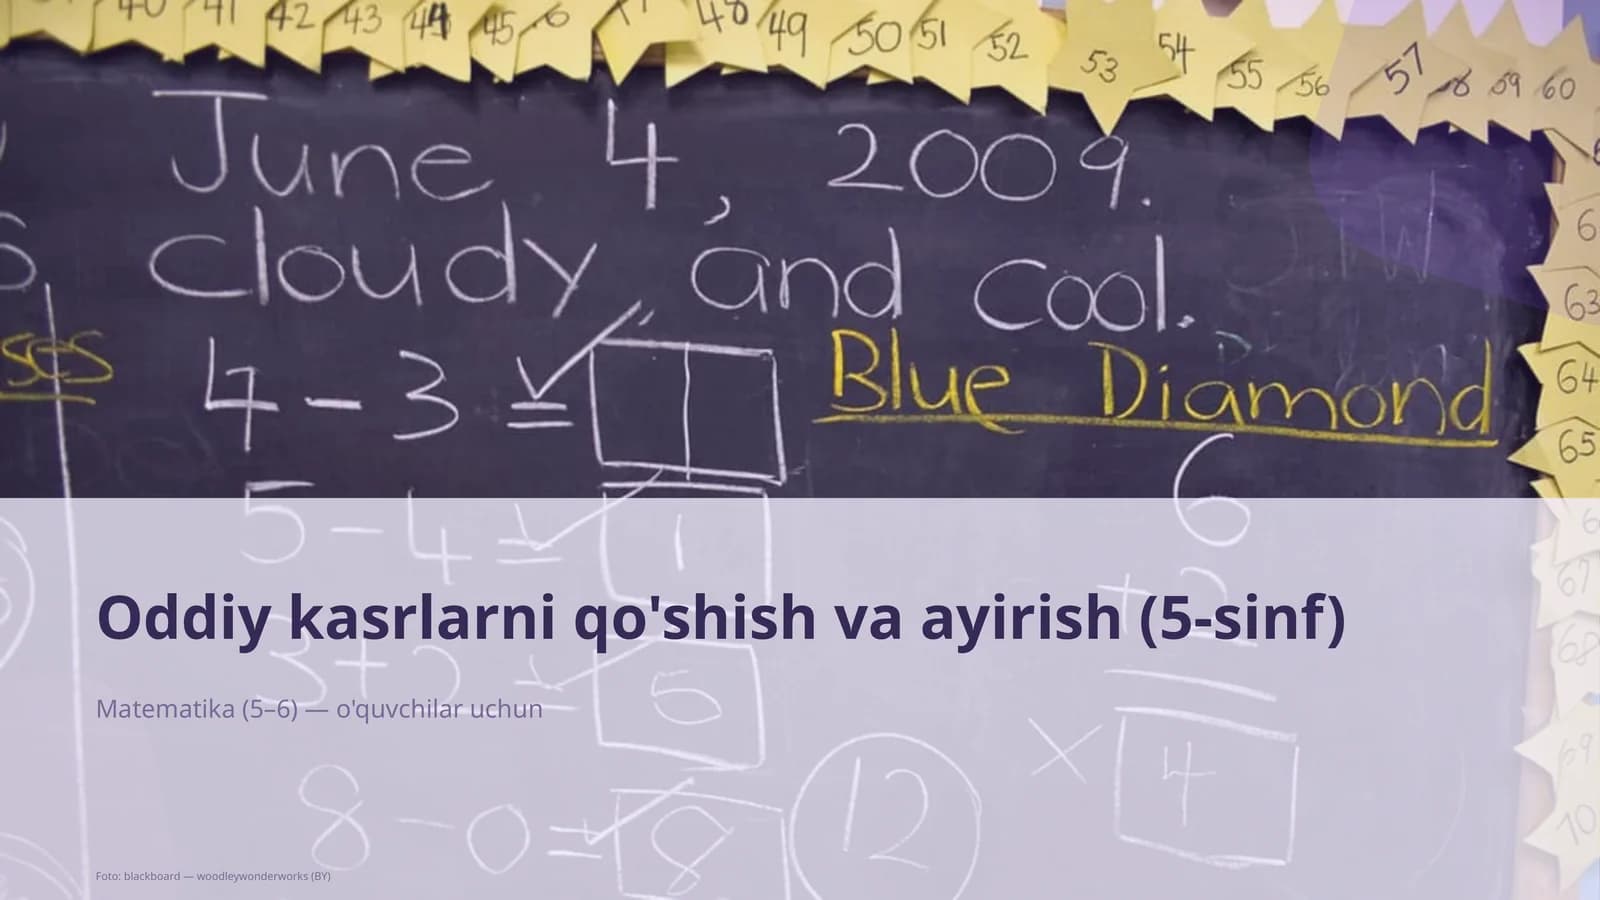 40 41 42 43 44 45 48 49 50 51 52 53 54 55 56 57 58 59 60
June 4, 2009.
Cloudy, and cool.
ses
63
4 - 3 =
Blue Diamond
64
65
5 - 4 = 1
6
+2
67
68
Oddiy kasrlarni qo'shish va ayirish (5-sinf)
5
Matematika (5–6) — o'quvchilar uchun
69
× 4
8 - 0 = 8
12
70
Foto: blackboard — woodleywonderworks (BY)